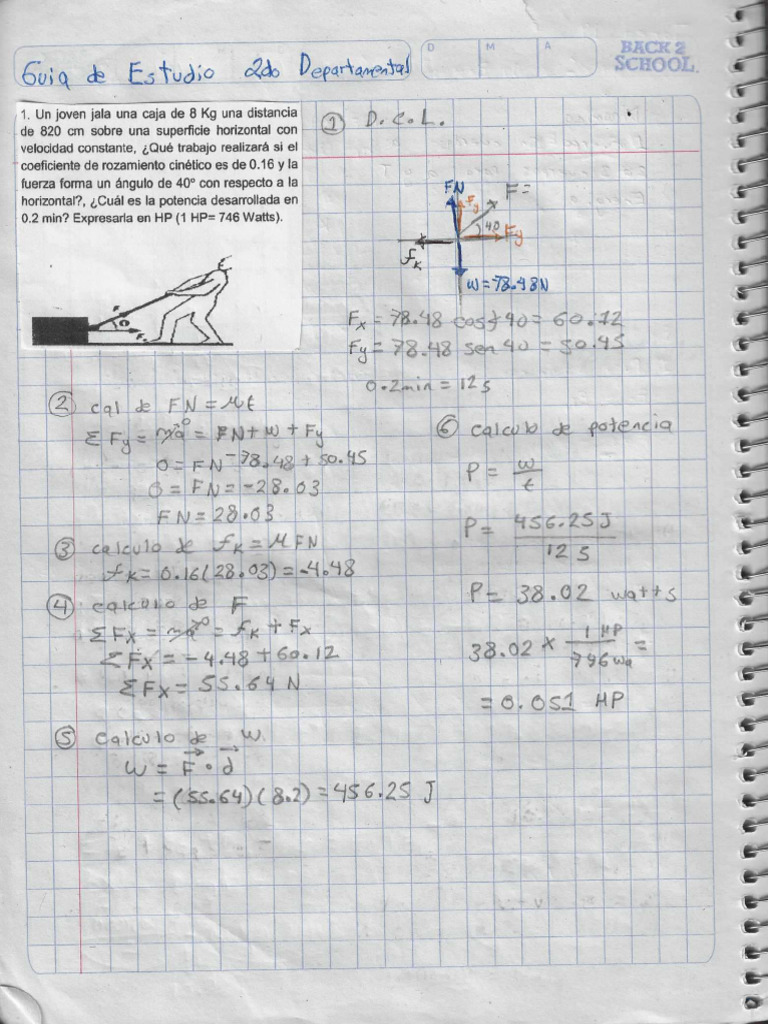 Guia de Estudio 2do Departamental
D M A
BACK 2
SCHOOL.
1. Un joven jala una caja de 8 Kg una distancia
de 820 cm sobre una superficie horizontal con
velocidad constante, ¿Qué trabajo realizará si el
coeficiente de rozamiento cinético es de 0.16 y la
fuerza forma un ángulo de 40° con respecto a la
horizontal?, ¿Cuál es la potencia desarrollada en
0.2 min? Expresarla en HP (1 HP= 746 Watts).
① D.C.L.
FN
Fy
F=
40
Fy
fK
W=78.48N
Fx = 78.48 cos 40 = 60.12
Fy = 78.48 sen 40 = 50.45
0.2min = 12s
② cal de FN = Mt
ΣFy = ma⁰ = FN + W + Fy
0 = FN -78.48 + 50.45
0 = FN = -28.03
FN = 28.03
③ calculo de fK = MFN
fK = 0.16(28.03) = -4.48
④ calculo de F
ΣFx = ma⁰ = fK + Fx
ΣFx = -4.48 + 60.12
ΣFx = 55.64 N
⑤ Calculo de W
W = F · d
= (55.64)(8.2) = 456.25 J
⑥ calculo de potencia
P = w/t
P = 456.25 J / 12 s
P = 38.02 watts
38.02 × 1 HP / 746 wa =
= 0.051 HP